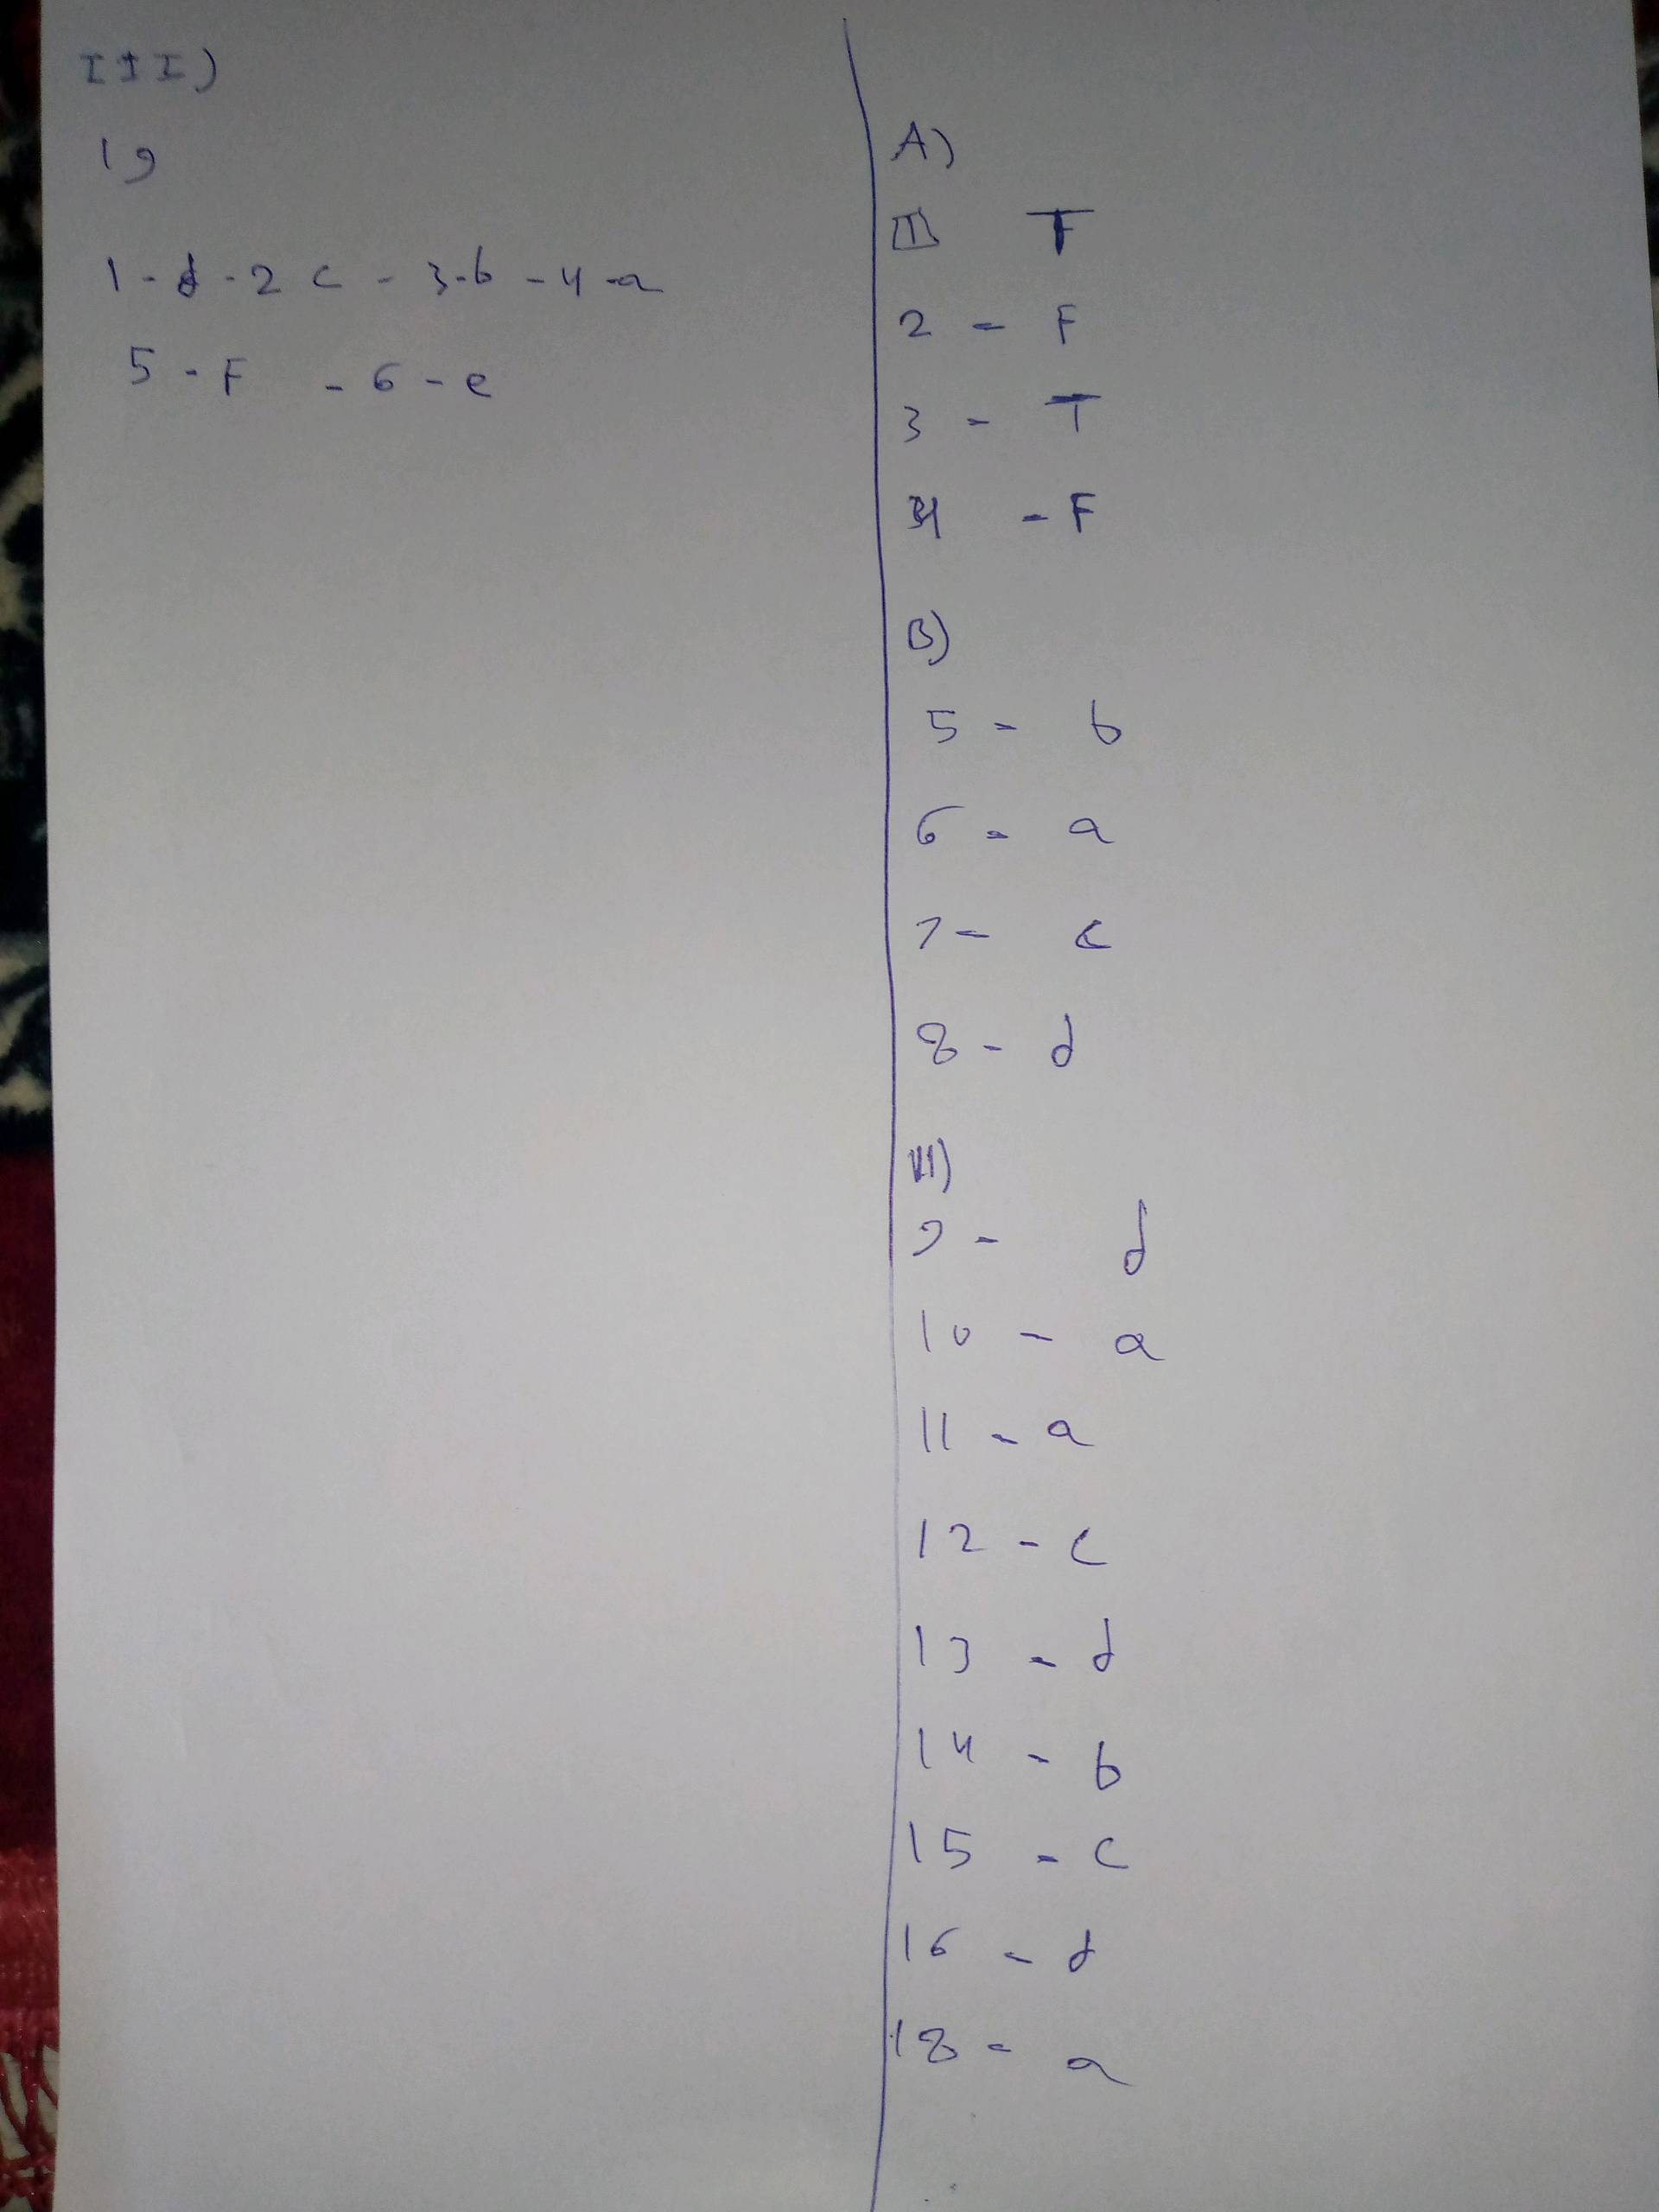 III)
19
1 - d - 2 c - 3 - b - 4 - a
5 - F - 6 - e
A)
1 T
2 - F
3 - T
4 - F
B)
5 - b
6 - a
7 - c
8 - d
II)
9 - d
10 - a
11 - a
12 - c
13 - d
14 - b
15 - c
16 - d
18 - a